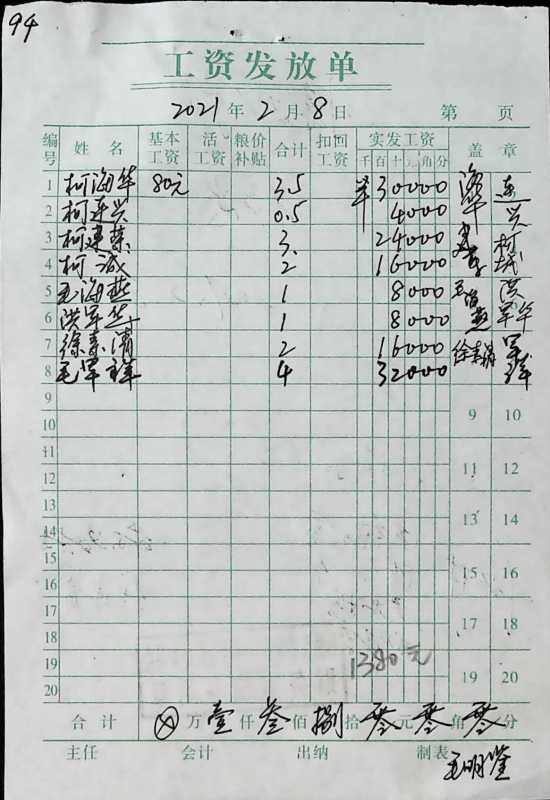 94
工资发放单
2021年2月8日 第 页
编号 姓名 基本工资 活工资 粮价补贴 合计 扣回工资 实发工资 千百十元角分 盖章
1 柯海华 80元 3.5 30000
2 柯连兴 0.5 4000 兴
3 柯建荣 3 24000 柯
4 柯斌 2 16000
5 毛海燕 1 8000 毛海燕 洪
6 洪军华 1 8000 军华
7 徐素清 2 16000 徐素清 军
8 毛军锋 4 32000 锋
9 9 10
10
11 11 12
12
13 13 14
14
15 15 16
16
17 17 18
18
19 1380元 19 20
20
合计 ⊗万壹仟叁佰捌拾零元零角零分
主任 会计 出纳 制表 毛明鉴